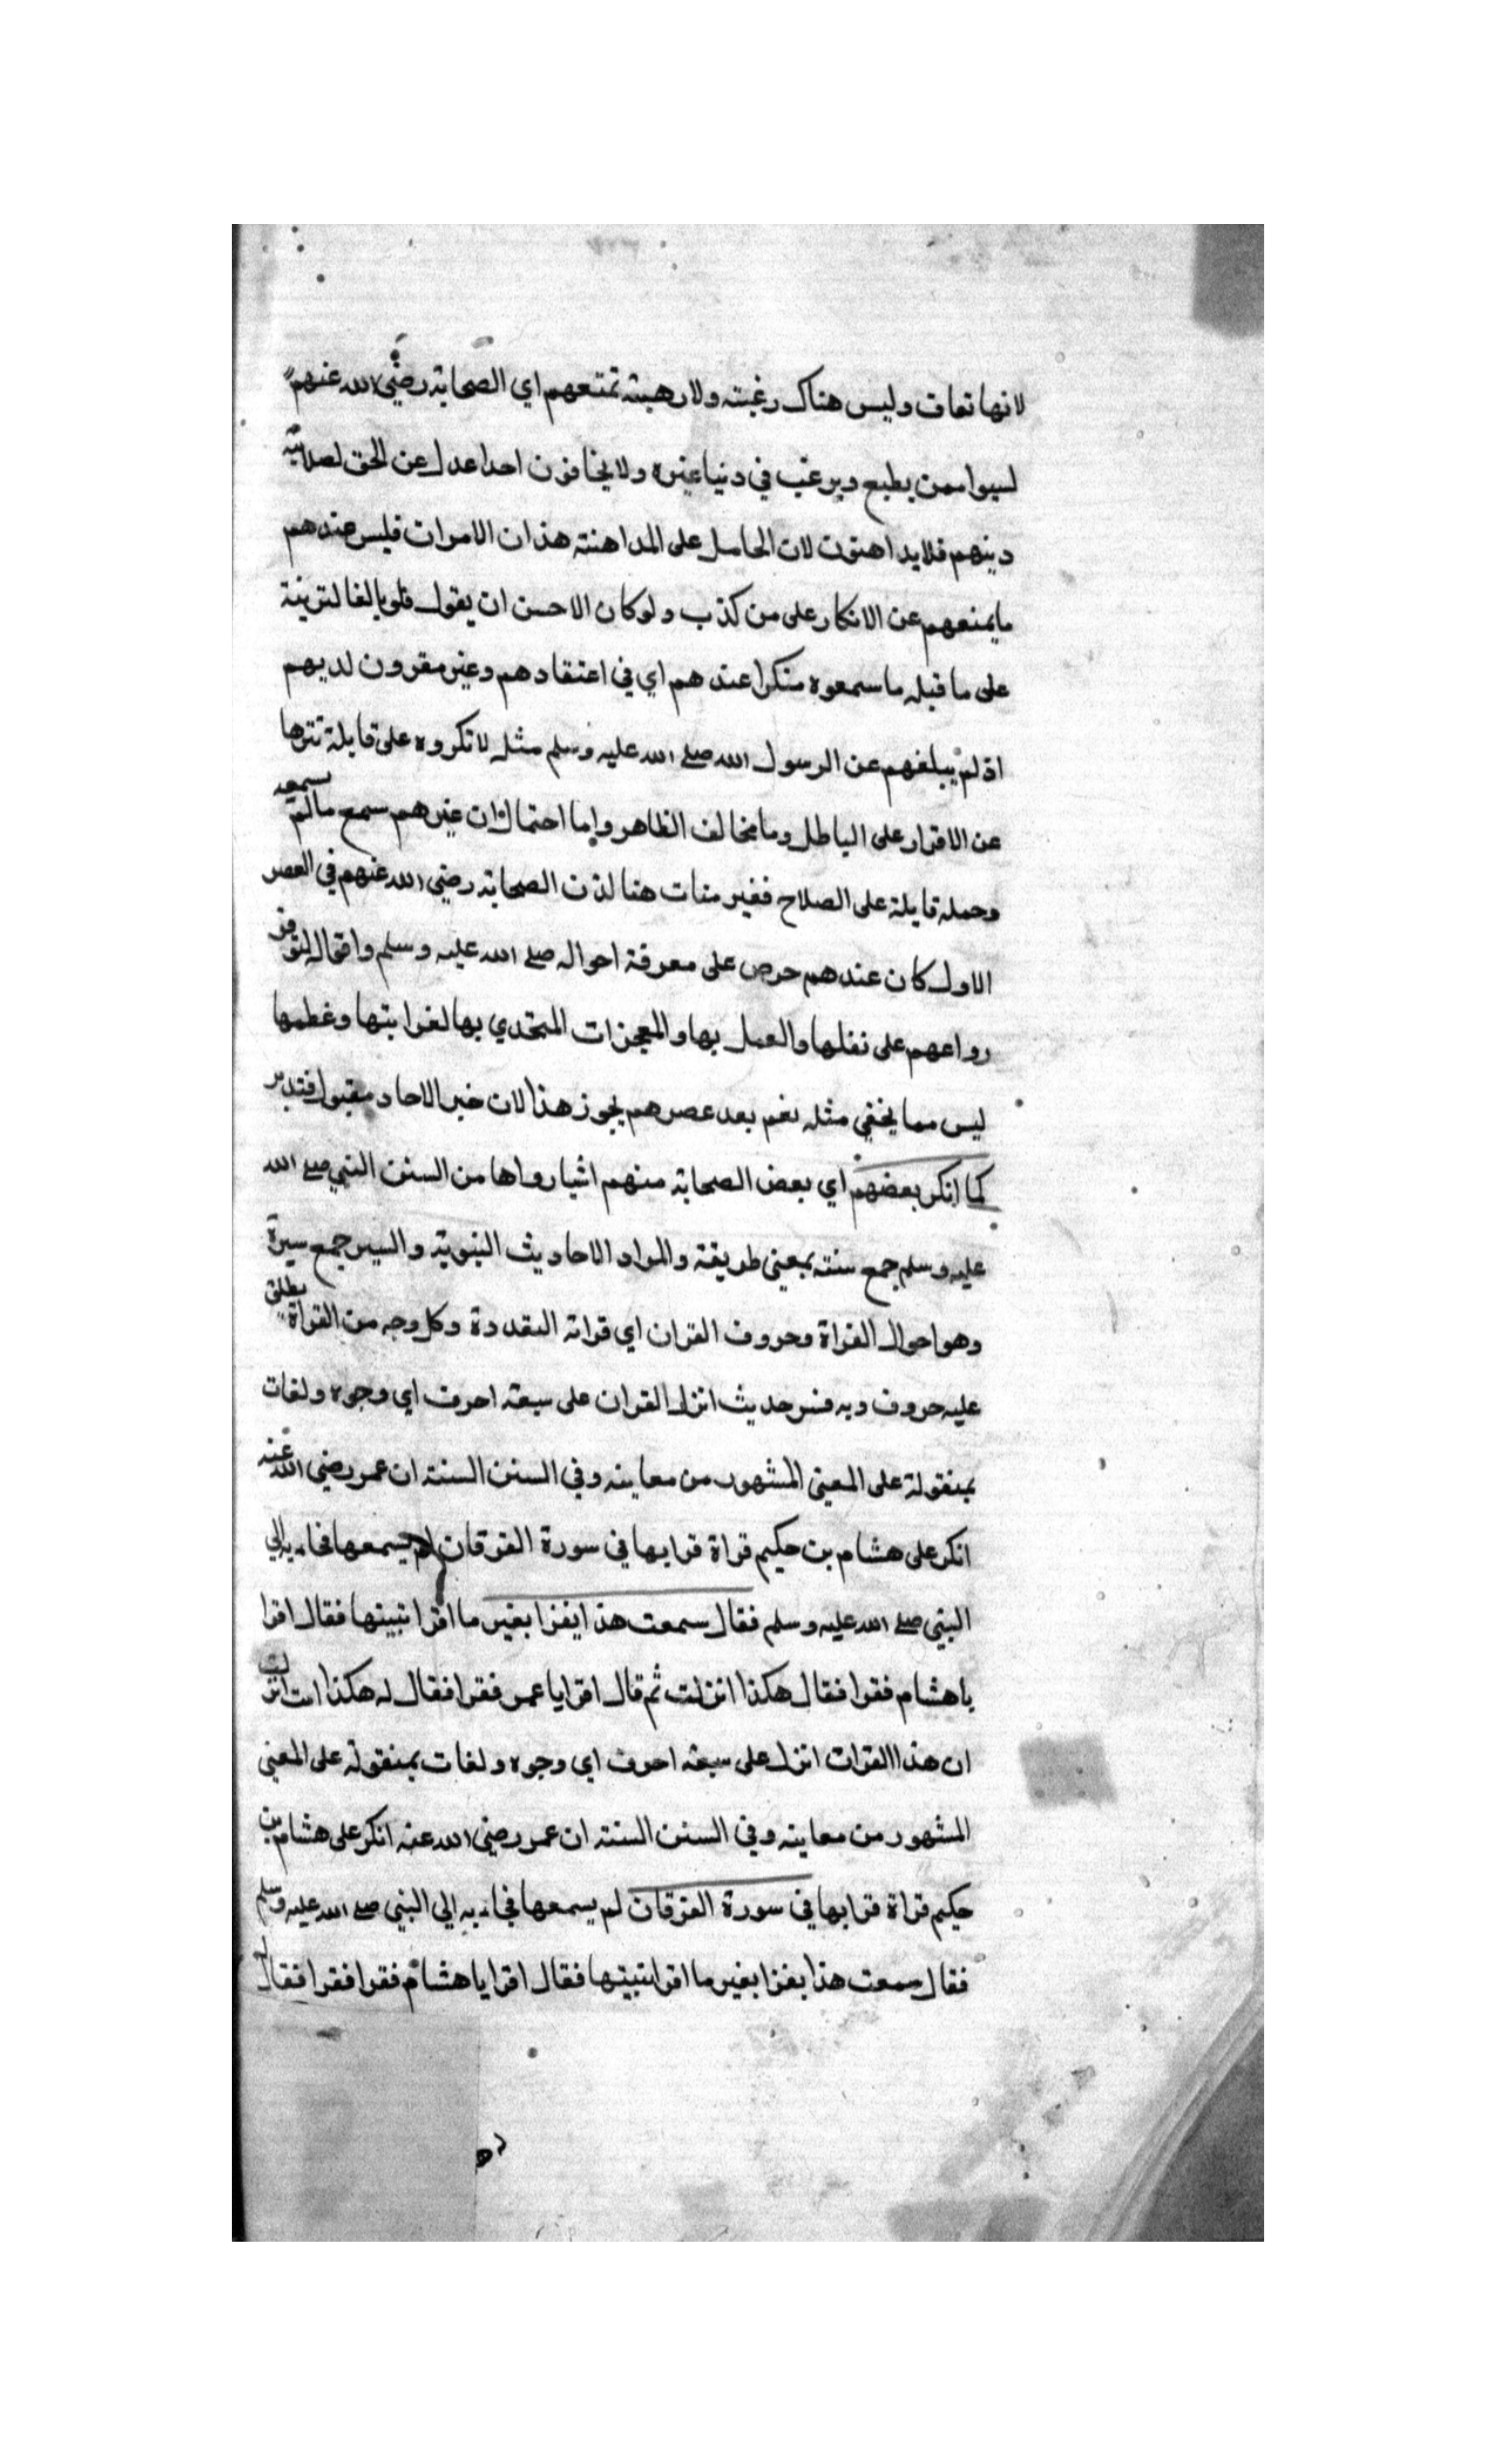 لانها تعاف وليس هناك رغبته ولا رهبته تمنعهم اي الصحابة رضي الله عنهم
ليسوا ممن يطبع ويرغب في دنيا غيره ولا يخافون احدا عدل عن الحق لصلابته
دينهم فلا يداهنون لان الحامل على المداهنته هذان الامران فليس عندهم
ما يمنعهم عن الانكار على من كذب ولو كان الاحسن ان يقول فلو بالغا لترينة
على ما قبله ما سمعوه منكرا عندهم اي في اعتقادهم وغير مقرون لديهم
اذ لم يبلغهم عن الرسول الله صلى الله عليه وسلم مثله لانكروه على قايلة تنزها
عن الاقرار على الباطل وما مخالف الظاهر واما احتمال ان غيرهم سمع مالم يسمعه
وحمله قايلة على الصلاح فغير منات هنا لان الصحابة رضي الله عنهم في العصر
الاول كان عندهم حرص على معرفة احواله صلى الله عليه وسلم واقواله لتوفر
رواعهم على نقلها والعمل بها والمعجزات المتحدي بها لغرابتها وعظمها
ليس مما يخفي مثله نعم بعد عصرهم يجوز هذا لان خبر الاحاد مقبول فتدبر
كما انكر بعضهم اي بعض الصحابة منهم اشيا رواها من السنن النبي صلى الله
عليه وسلم جمع سنته بمعنى طريقة والمراد الاحاديث النبوية والسير جمع سيرة
وهو احوال الغزاة وحروف القران اي قراته البقددة وكل وجه من القراة يطلق
عليه حروف وبه فسر حديث انزل القران على سبعة احرف اي وجوه ولغات
بمنقولة على المعنى المشهور من معاينه وفي السنن السنته ان عمر رضي الله عنه
انكر على هشام بن حكيم قراة قرا بها في سورة الفرقان لم يسمعها فجاء به الي
النبي صلى الله عليه وسلم فقال سمعت هذا يقرا بغير ما اقرا نبيتها فقال اقرا
يا هشام فقرا فقال هكذا انزلت ثم قال اقرا يا عمر فقرا فقال له هكذا انزلت
ان هذا القران انزل على سبعة احرف اي وجوه ولغات بمنقولة على المعنى
المشهور من معاينه وفي السنن السنته ان عمر رضي الله عنه انكر على هشام بن
حكيم قراة قرا بها في سورة الفرقان لم يسمعها فجاء به الي النبي صلى الله عليه وسلم
فقال سمعت هذا يقرا بغير ما اقرا نبيتها فقال اقرا يا هشام فقرا فقرا فقال له